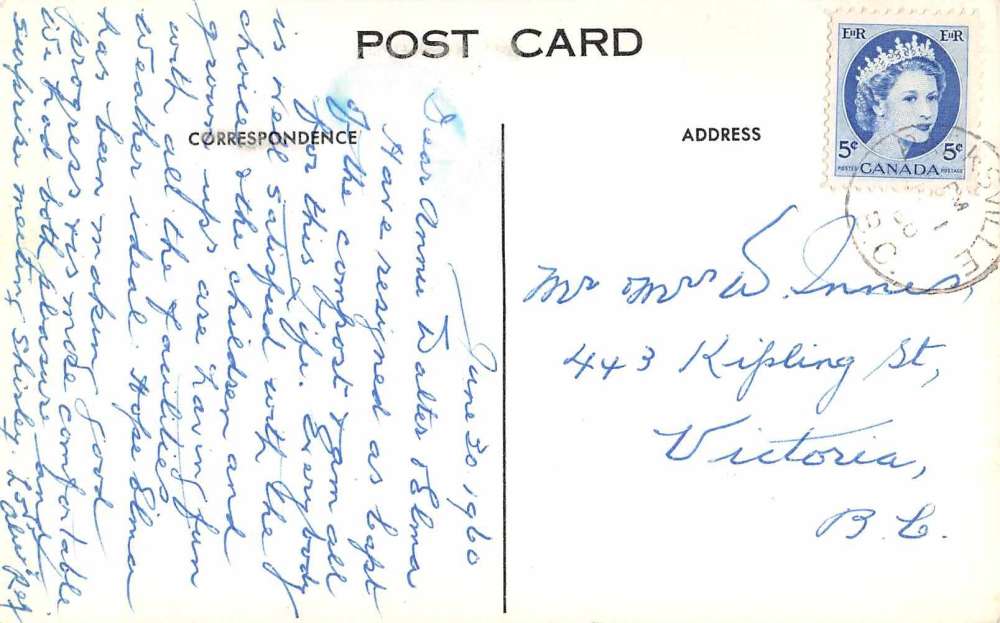 POST CARD
CORRESPONDENCE
ADDRESS
EIIR EIIR
5¢ 5¢
POSTES CANADA POSTAGE
June 30 1960
Dear Anne Walter & Elma
Have resigned as Capt
of the compost & am all
for this life. Everybody
is well satisfied with the
choice & the children and
grown ups are having fun
with all the facilities
Weather ideal. Hope Elma
has been making good
progress & is more comfortable
We had both pleasure and
surprise meeting Shirley.
Mr Mrs W. Innes,
443 Kipling St,
Victoria,
B.C.